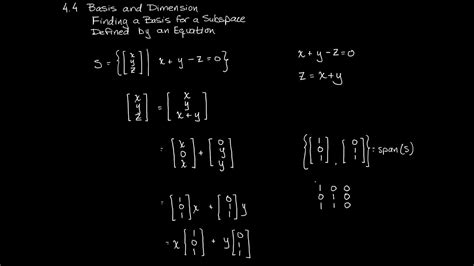 4.4 Basis and Dimension
Finding a Basis for a Subspace
Defined by an Equation
S = {[x y z] | x + y - z = 0}
x + y - z = 0
z = x + y
[x y z] = [x y x+y]
= [x 0 x] + [0 y y]
{[1 0 1], [0 1 1]} = span(S)
1 0 0
0 1 0
1 1 0
= [1 0 1] x + [0 1 1] y
= x [1 0 1] + y [0 1 1]